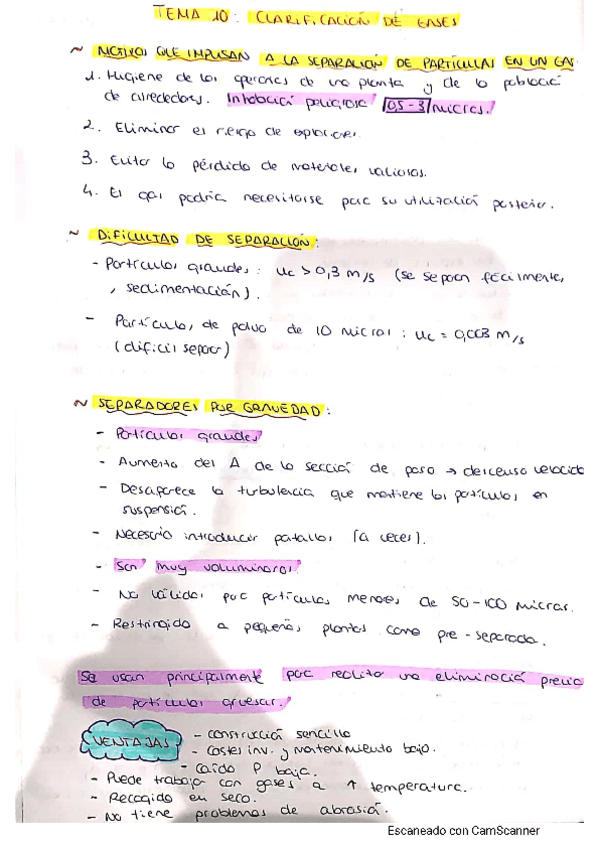 TEMA 10: CLARIFICACIÓN DE GASES
~ MOTIVOS QUE IMPULSAN A LA SEPARACIÓN DE PARTÍCULAS EN UN GAS
1. Higiene de los operarios de una planta y de la población
de alrededores. Inhalación peligrosa 0,5-3 micras.
2. Eliminar el riesgo de explosiones.
3. Evitar la pérdida de materiales valiosos.
4. El gas podría necesitarse para su utilización posterior.
~ DIFICULTAD DE SEPARACIÓN:
- Partículas grandes: uc > 0,3 m/s (se separan fácilmente,
, sedimentación).
- Partículas de polvo de 10 micras: uc = 0,003 m/s
(difícil separar)
~ SEPARADORES POR GRAVEDAD:
- Partículas grandes
- Aumento del A de la sección de paso → descenso velocidad
- Desaparece la turbulencia que mantiene las partículas en
suspensión.
- Necesario introducir pantallas (a veces).
- Son muy voluminosos.
- No válidos para partículas menores de 50-100 micras.
- Restringido a pequeñas plantas como pre-separador.
Se usan principalmente para realizar una eliminación previa
de partículas gruesas.
VENTAJAS
- construcción sencilla
- Costes inv. y mantenimiento bajo.
- Caída P baja.
- Puede trabajar con gases a ↑ temperatura.
- Recogida en seco.
- No tiene problemas de abrasión.
Escaneado con CamScanner